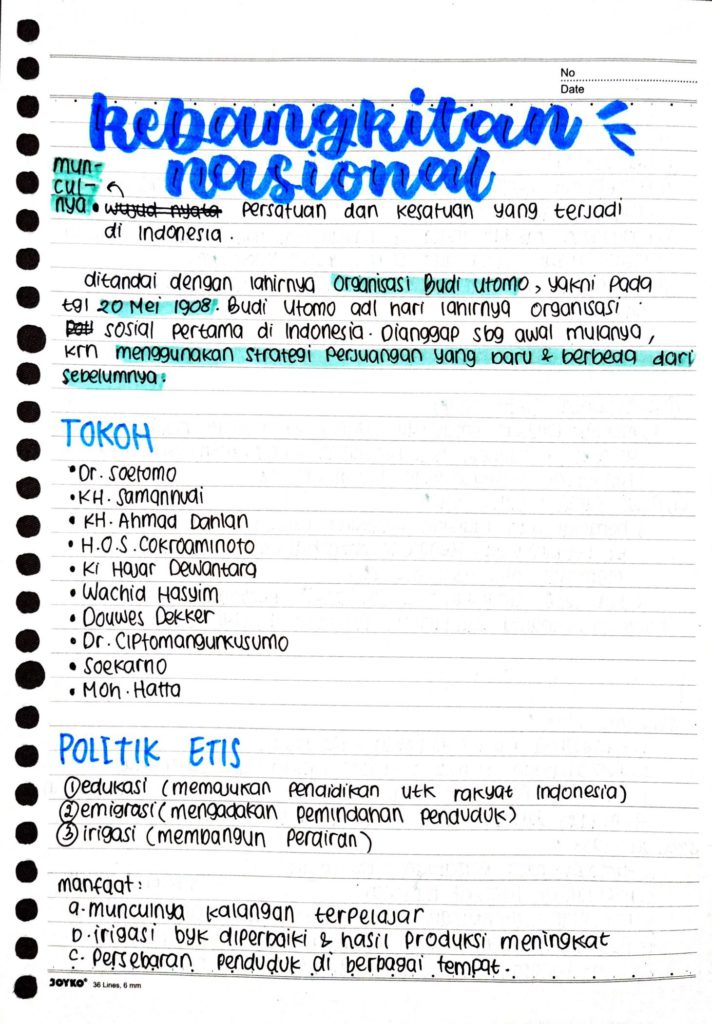 No
Date
kebangkitan
nasional
mun-
cul-
nya • wujud nyata persatuan dan kesatuan yang terjadi
di Indonesia.
ditandai dengan lahirnya organisasi Budi Utomo, yakni pada
tgl 20 Mei 1908. Budi Utomo adl hari lahirnya organisasi
sosial pertama di Indonesia. Dianggap sbg awal mulanya,
krn menggunakan strategi perjuangan yang baru & berbeda dari
sebelumnya.
TOKOH
• Dr. Soetomo
• KH. Samanhudi
• KH. Ahmad Dahlan
• H.O.S. Cokroaminoto
• Ki Hajar Dewantara
• Wachid Hasyim
• Douwes Dekker
• Dr. Ciptomangunkusumo
• Soekarno
• Moh. Hatta
POLITIK ETIS
① edukasi (memajukan pendidikan utk rakyat Indonesia)
② emigrasi (mengadakan pemindahan penduduk)
③ irigasi (membangun perairan)
manfaat:
a. munculnya kalangan terpelajar
b. irigasi byk diperbaiki & hasil produksi meningkat
c. persebaran penduduk di berbagai tempat.
JOYKO® 36 Lines, 6 mm